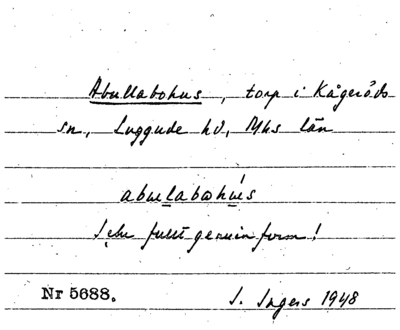 Abullabohus, torp i Kågeröds
sn, Luggude hd, Mhs län
abulabohus
Icke fullt genuin form!
Nr 5688. I. Ingers 1948